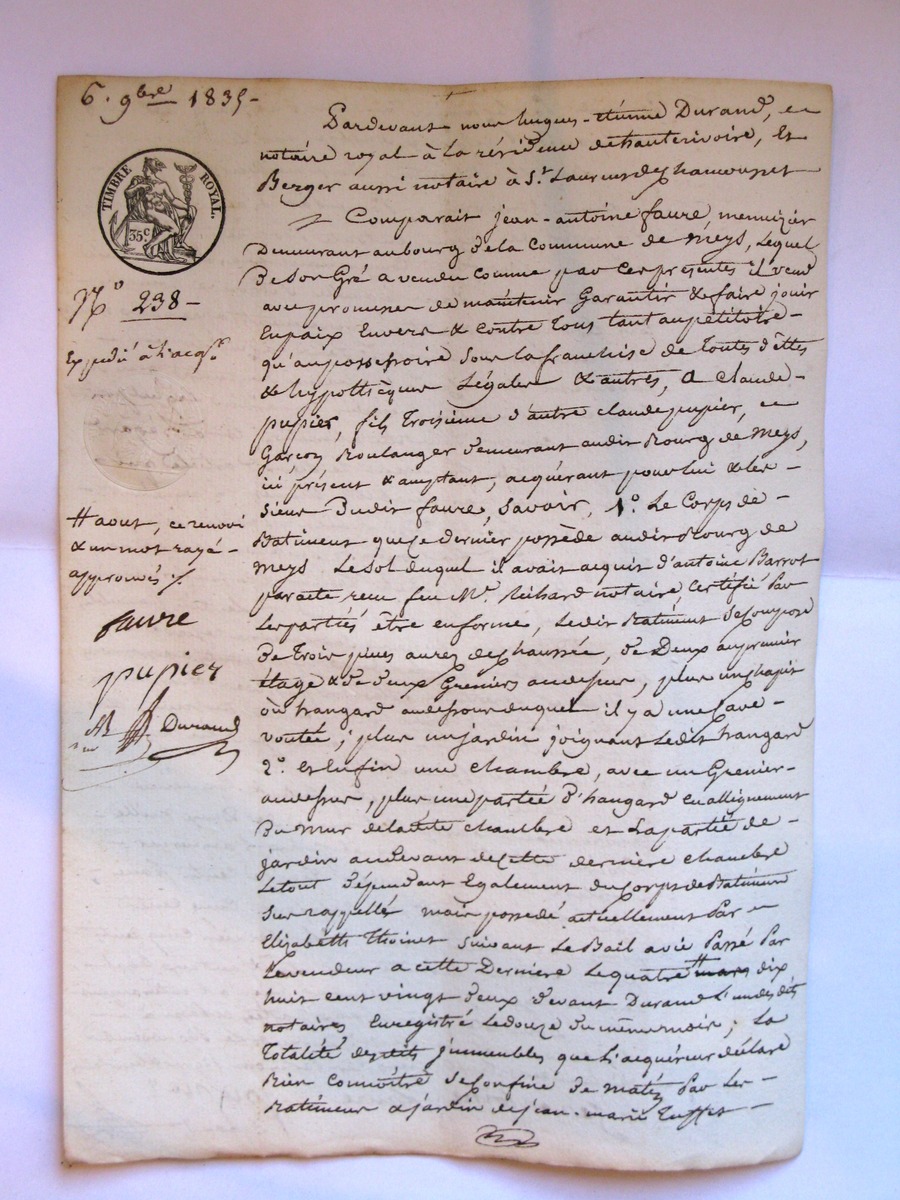 6. 9bre 1835-
TIMBRE ROYAL.
35 c
No 238-
Expedié à l'acqr
# aout, ce renvoi
& un mot rayé-
approuvés ./.
faure
pupier
Durand
Pardevant nous hugues-étienne Durand,
notaire royal à la résidence de hauterivoire, Et
Berger aussi notaire à St Laurent de chamousset
Comparait jean-antoine faure, menuizier
Demeurant au bourg de la Commune de Meys, Lequel
De son Gré a vendu comme par Ces présentes il vend
avec promesse de maintenir Garantir & faire jouir
En paix Envers & Contre Tous tant au pétitoire-
qu'au possessoire sous la franchise de Toutes dettes
& hypothèques Légales & autres, a Claude-
pupier, fils Troisième d'autre claude pupier,
Garçon Boulanger demeurant audit Bourg de Meys,
ici présent & acceptant, acquérant pour lui & les-
siens Dudit faure, Savoir, 1o. Le Corps de-
Batiment que ce dernier possède audit Bourg de
Meys Le sol duquel il avait acquit d'antoine Barrot
par acte recu feu Me. Richard notaire, Certifié Par
Les partiés être en forme, Ledit Batiment Se Compose
De Trois pièces au rez de chaussée, de Deux au premier
Etage & de deux Greniers au dessus, plus un chapit
ou hangard au dessous duquel il y a une Cave-
voutée; plus un jardin joignant Ledit hangard
2o. Et Enfin une chambre, avec un Grenier-
au dessus, plus une partie d'hangard en allignement
Du mur de la dite chambre et La partie de-
jardin au devant de Cette dernière chambre
Le tout dépendant Egalement du Corps de Batiment
Sus rappellé mais possedé actuellement Par
Elizabeth Thoinet suivant Le Bail a vie Passé Par
Le vendeur a cette Dernière Le quatre # mars dix
huit cent vingt deux devant Durand L'un des dits
notaires Enregistré Le douze du même mois; La
Totalité des dits jmmeubles que L'acquéreur déclare
Bien Connoitre Se Confine de matin Par Les-
Batiments & jardin de jean-marie